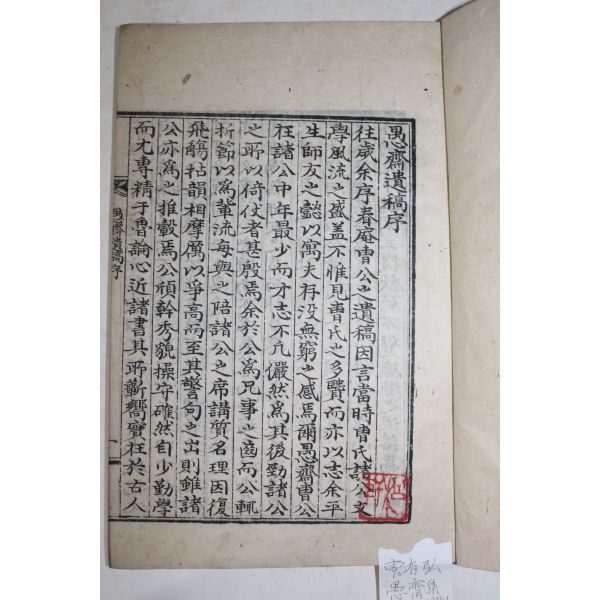 愚齋遺稿序
往歲余序春庵曺公之遺稿因言當時曺氏諸公文
學風流之盛盖不惟見曺氏之多賢而亦以志余平
生師友之懿以寓夫存没無窮之感焉爾愚齋曺公
在諸公中年最少而才志不凡儼然爲其後勁諸公
之所以倚仗者甚殷焉余於公爲兄事之齒而公輒
折節以爲輩流每與之陪諸公之席講質名理因復
飛觴拈韻相摩厲以爭高而至其警句之出則雖諸
公亦爲之推轂焉公頎幹秀貌操守確然自少勤學
而尤專精于魯論心近諸書其所蘄嚮實在於古人
愚齋遺稿序
一
有弘
愚齋集